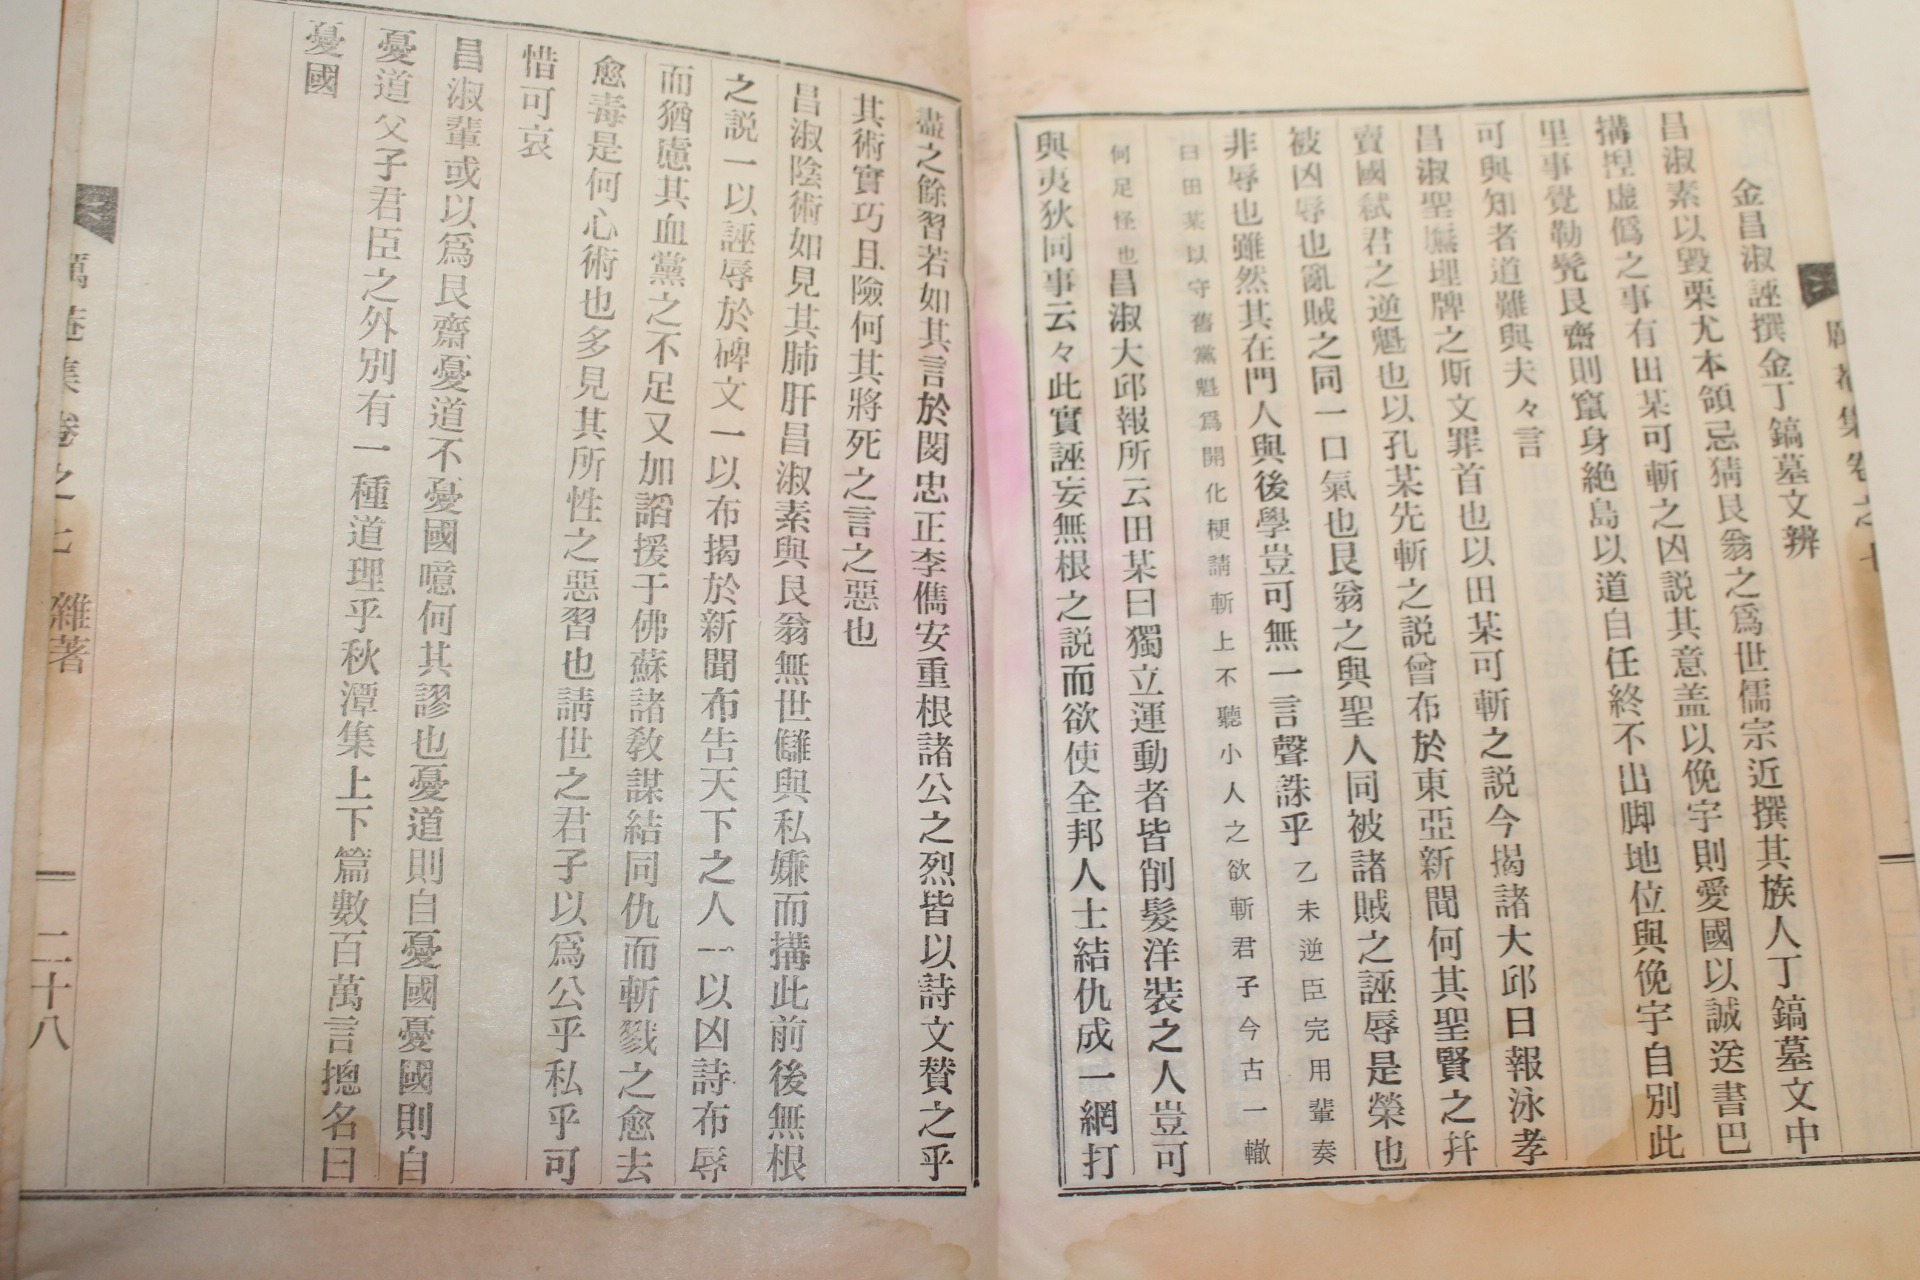 集卷之七
金昌淑誣撰金丁鎬墓文辨
昌淑素以毀栗尤本領忌猜艮翁之爲世儒宗近撰其族人丁鎬墓文中
搆捏虛僞之事有田某可斬之凶説其意盖以俛宇則愛國以誠送書巴
里事覺勒髡艮齋則竄身絶島以道自任終不出脚地位與俛宇自別此
可與知者道難與夫々言
昌淑聖廡埋牌之斯文罪首也以田某可斬之説今揭諸大邱日報泳孝
賣國弑君之逆魁也以孔某先斬之説曾布於東亞新聞何其聖賢之幷
被凶辱也亂賊之同一口氣也艮翁之與聖人同被諸賊之誣辱是榮也
非辱也雖然其在門人與後學豈可無一言聲誅乎乙未逆臣完用輩奏
曰田某以守舊黨魁爲開化梗請斬上不聽小人之欲斬君子今古一轍
何足怪也昌淑大邱報所云田某曰獨立運動者皆削髮洋裝之人豈可
與夷狄同事云々此實誣妄無根之説而欲使全邦人士結仇成一網打
盡之餘習若如其言於閔忠正李儁安重根諸公之烈皆以詩文贊之乎
其術實巧且險何其將死之言之惡也
昌淑陰術如見其肺肝昌淑素與艮翁無世讎與私嫌而搆此前後無根
之説一以誣辱於碑文一以布揭於新聞布告天下之人一以凶詩布辱
而猶慮其血黨之不足又加謟援于佛蘇諸敎謀結同仇而斬戮之愈去
愈毒是何心術也多見其所性之惡習也請世之君子以爲公乎私乎可
惜可哀
昌淑輩或以爲艮齋憂道不憂國噫何其謬也憂道則自憂國憂國則自
憂道父子君臣之外別有一種道理乎秋潭集上下篇數百萬言摠名曰
憂國
集卷之七 雜著
二十八